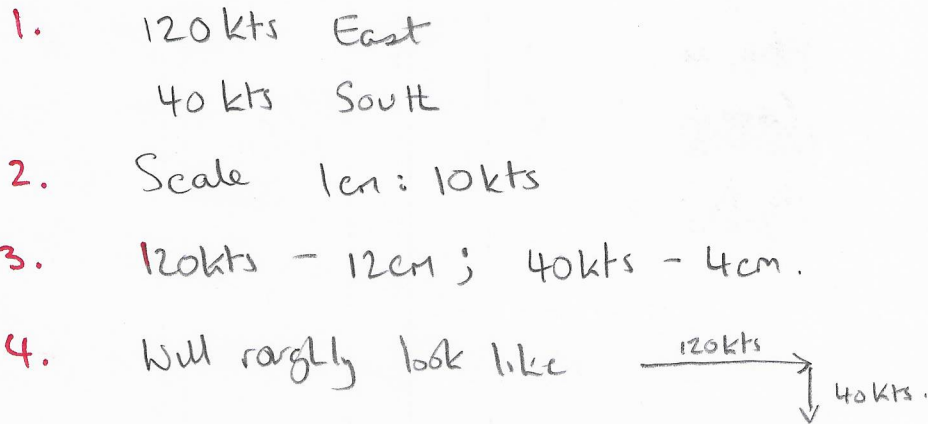 1. 120 kts East
40 kts South
2. Scale 1cm : 10kts
3. 120kts - 12cm ; 40kts - 4cm.
4. Will roughly look like 120kts
40kts.